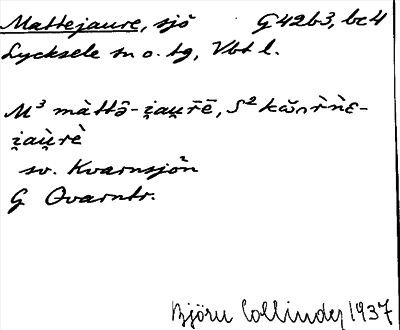 Mattejaure, sjö G 42b3, bc4
Lycksele sn o. tg, Vbt l.
M³ màttə̂-i̯au̯r̄ē, S² kŏ̭ʌr̀ǹε-
i̯aù̯rè
sv. Kvarnsjön
G Qvarntr.
Björn Collinder 1937